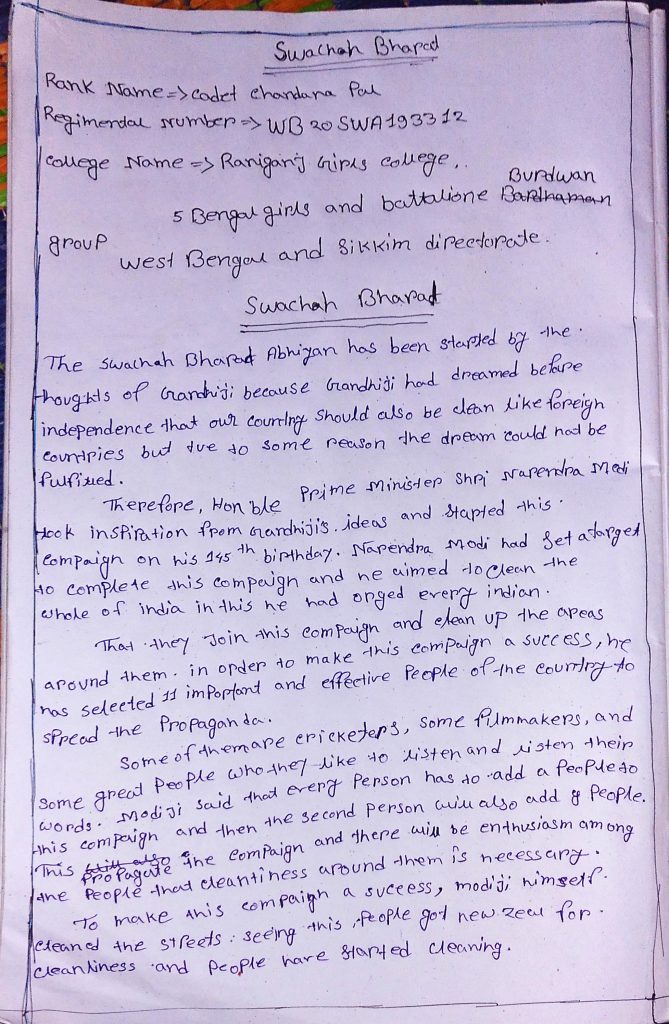 Swachah Bharat
Rank Name => Cadet Chandana Pal
Regimental Number => WB 20 SWA193312
College Name => Raniganj Girls College,.
Burdwan
5 Bengal girls and battalione Bardhaman
group
West Bengal and Sikkim directorate.
Swachah Bharat
The Swachah Bharat Abhiyan has been started by the
thoughts of Gandhiji because Grandhiji had dreamed before
independence that our country should also be clean like foreign
countries but due to some reason the dream could not be
fulfilled.
Therefore, Hon'ble Prime Minister Shri Narendra Modi
took inspiration from Grandhiji's ideas and started this
Compaign on his 145th birthday. Narendra Modi had set a target
to complete this compaign and he aimed to clean the
whole of india in this he had orged every indian.
That they Join this compaign and clean up the areas
around them. in order to make this compaign a success, he
has selected 11 important and effective People of the country to
spread the Propaganda.
Some of them are cricketers, some filmmakers, and
some great People who they like to listen and listen their
words. Modiji said that every Person has to add a People to
this compaign and then the second person will also add 9 People.
This Propagate the compaign and there will be enthusiasm among
the People that cleantiness around them is necessary.
To make this compaign a success, modiji himself
cleaned the streets. seeing this, People got new zeal for
cleanliness and people have started cleaning.